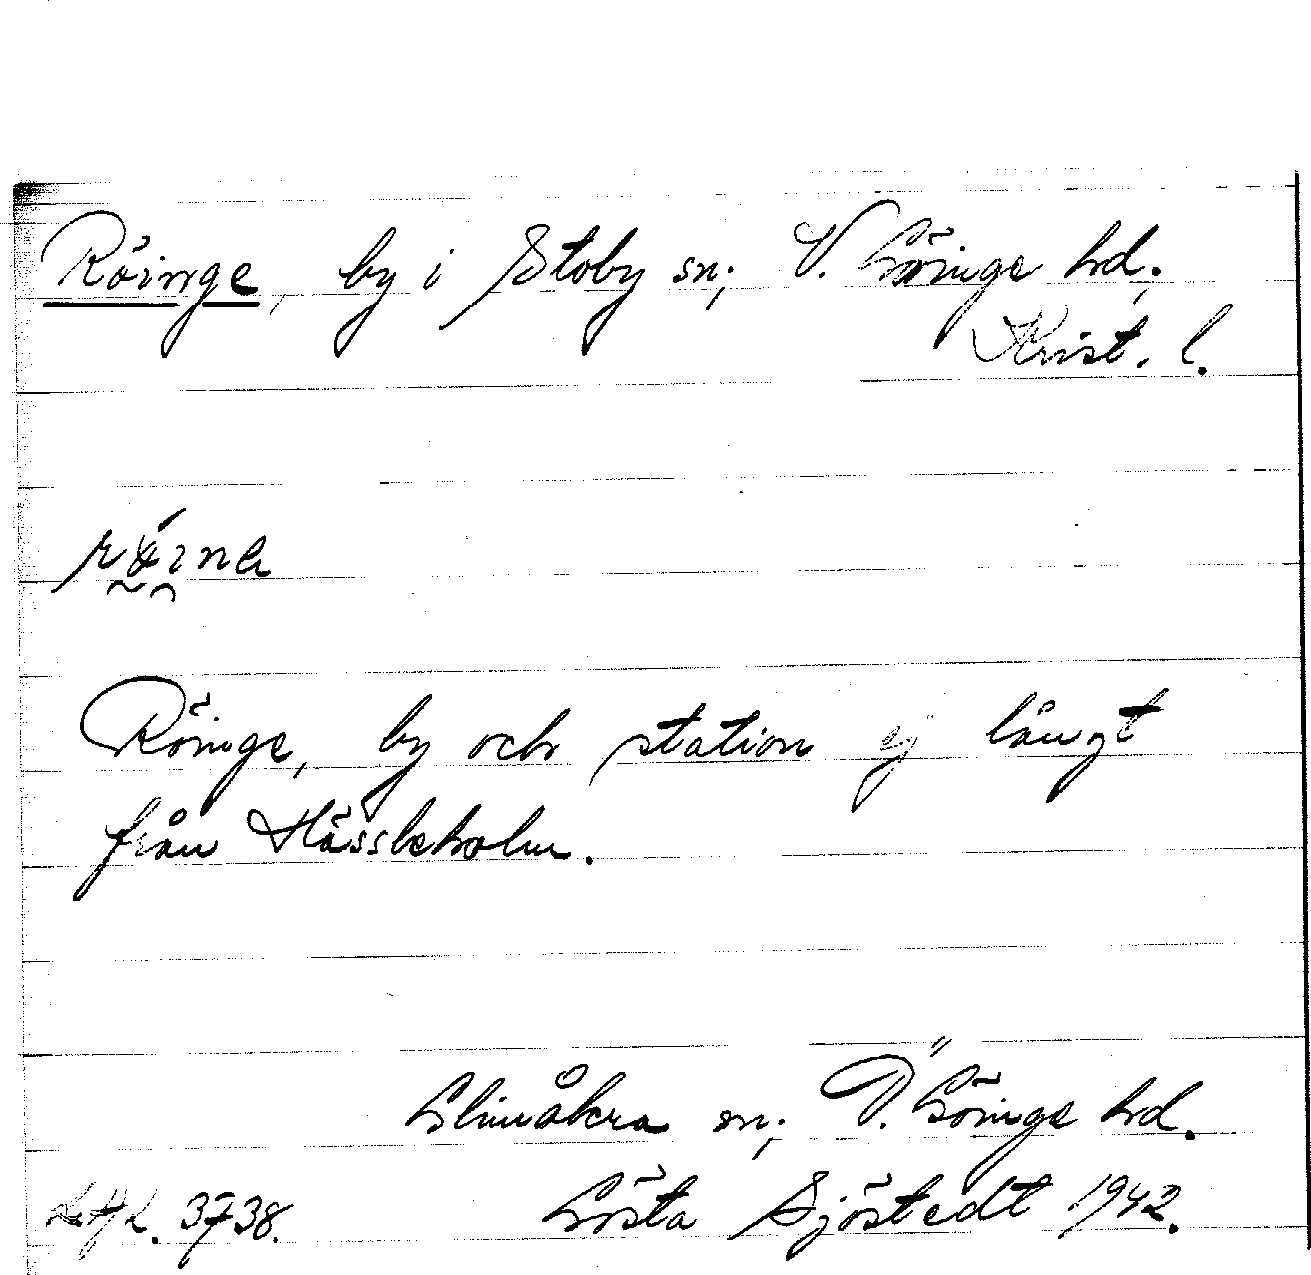 Röinge, by i Stoby sn; V. Göinge hd;
Krist. l.
Röinge, by och station ej långt
från Hässleholm.
Glimåkra sn; Ö. Göinge hd.
3738. Gösta Sjöstedt 1942.